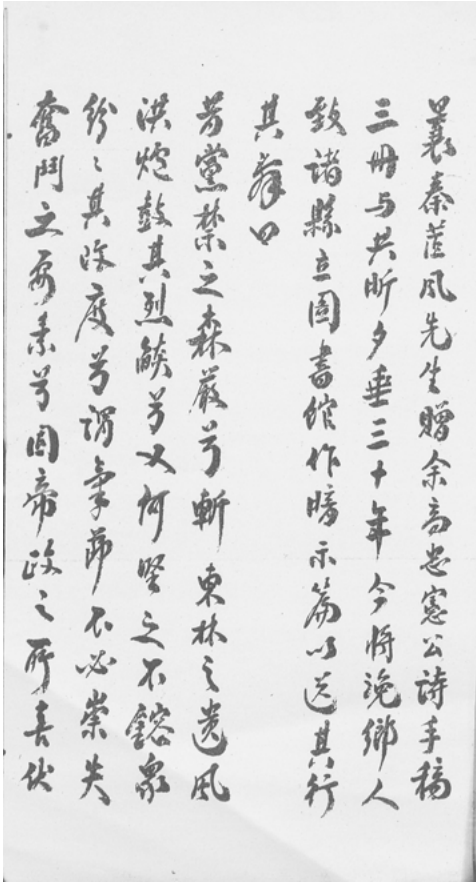 曩秦蓝风先生赠余高忠宪公诗手稿
三册与共昕夕垂三十年今将浼鄉人
致諸縣立圖書館作賸示篇以送其行
其辞曰
芳黨禁之森嚴兮斬東林之遺風
洪爐鼓其烈燄兮又何堅之不鎔眾
紛々其改度兮謂氣莭不必崇失
奮鬥之要素兮固帝政之所喜伏